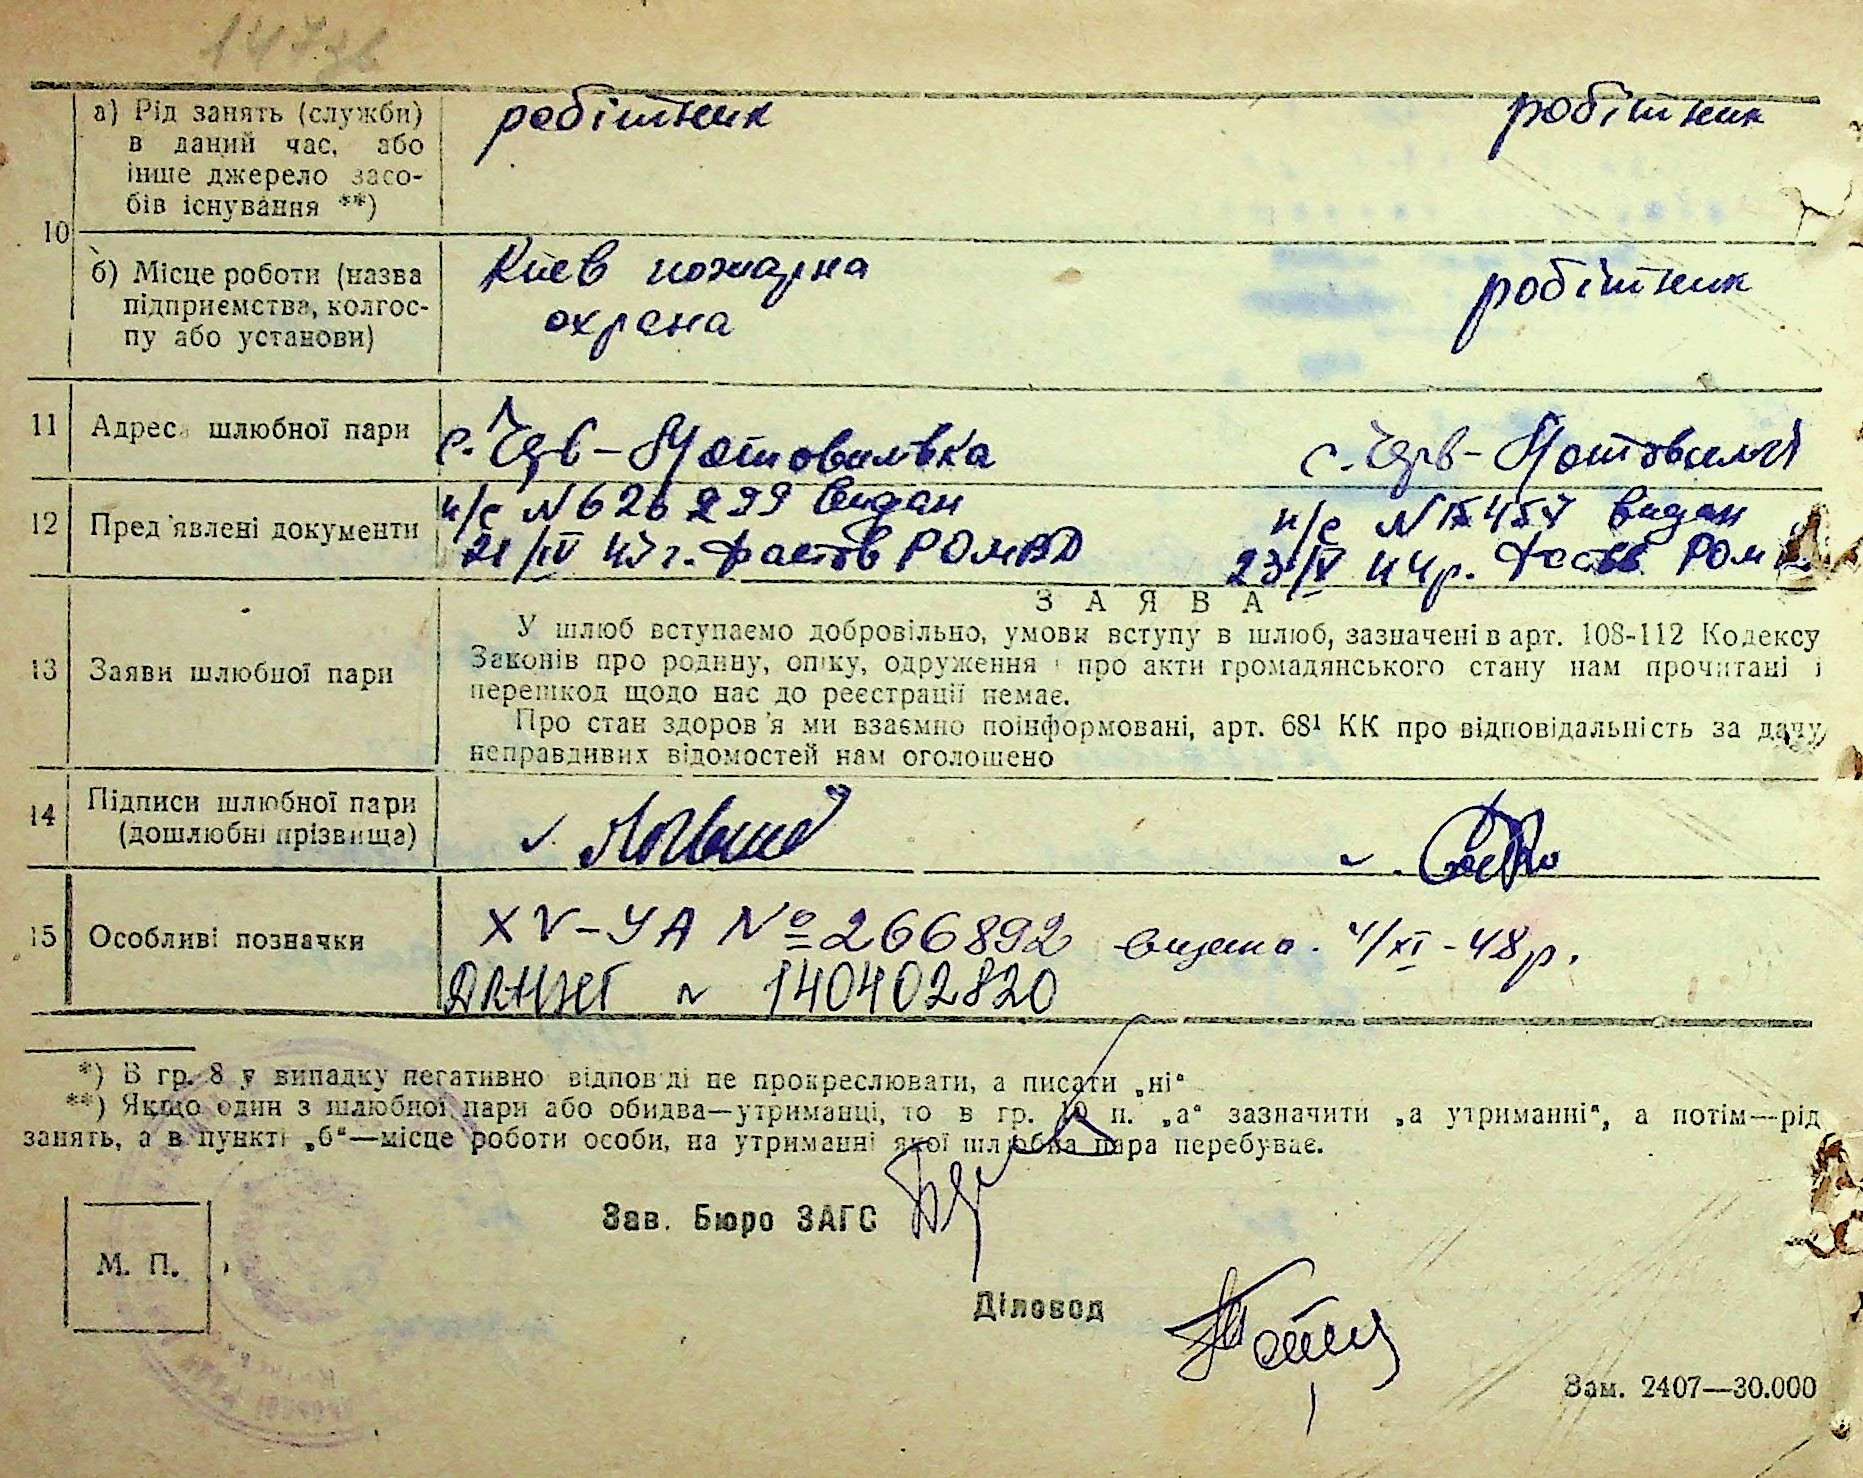 147зв
а) Рід занять (служби) в даний час, або інше джерело засобів існування **) робітник робітник
10
б) Місце роботи (назва підприємства, колгоспу або установи) Киев пожарна охрана робітник
11 Адреса шлюбної пари с. Черв-Мотовилівка с. Черв-Мотовил
12 Пред'явлені документи п/с N 626299 видан п/с N видан
21/IV 47 г. Фастов РОМВД 23/V 44р. Фастов РОМ
З А Я В А
13 Заяви шлюбної пари
У шлюб вступаємо добровільно, умови вступу в шлюб, зазначені в арт. 108-112 Кодексу
Законів про родину, опіку, одруження і про акти громадянського стану нам прочитані і
перешкод щодо нас до реєстрації немає.
Про стан здоров'я ми взаємно поінформовані, арт. 68¹ КК про відповідальність за дачу
неправдивих відомостей нам оголошено
14 Підписи шлюбної пари
(дошлюбні прізвища)
15 Особливі позначки XV-УА № 266892 видано. 4/XI-48р.
N 140402820
*) В гр. 8 у випадку негативно відпов ді не прокреслювати, а писати „ні"
**) Якщо один з шлюбної пари або обидва—утриманці, то в гр. 10 п. „а" зазначити „а утриманні", а потім—рід
занять, а в пункті „б"—місце роботи особи, на утриманні якої шлюбна пара перебуває.
Зав. Бюро ЗАГС
М. П.
Діловод
Зам. 2407—30.000